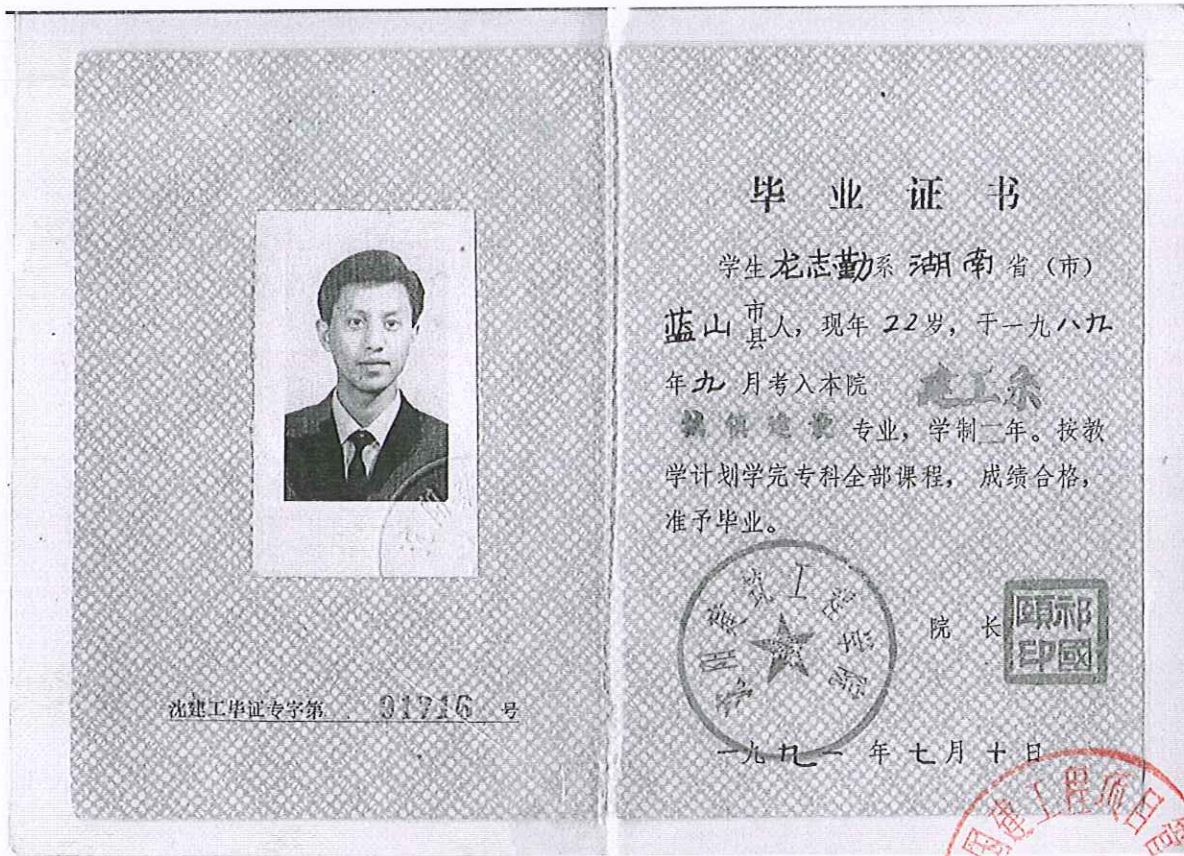 沈建工毕证专字第 91716 号
毕业证书
学生龙志勤系湖南省（市）
蓝山市县人，现年22岁，于一九八九
年九月考入本院 建工系
村镇建设专业，学制二年。按教
学计划学完专科全部课程，成绩合格，
准予毕业。
沈阳建筑工程学院
院长
祁國頤印
一九九一年七月十日
建工程项目管